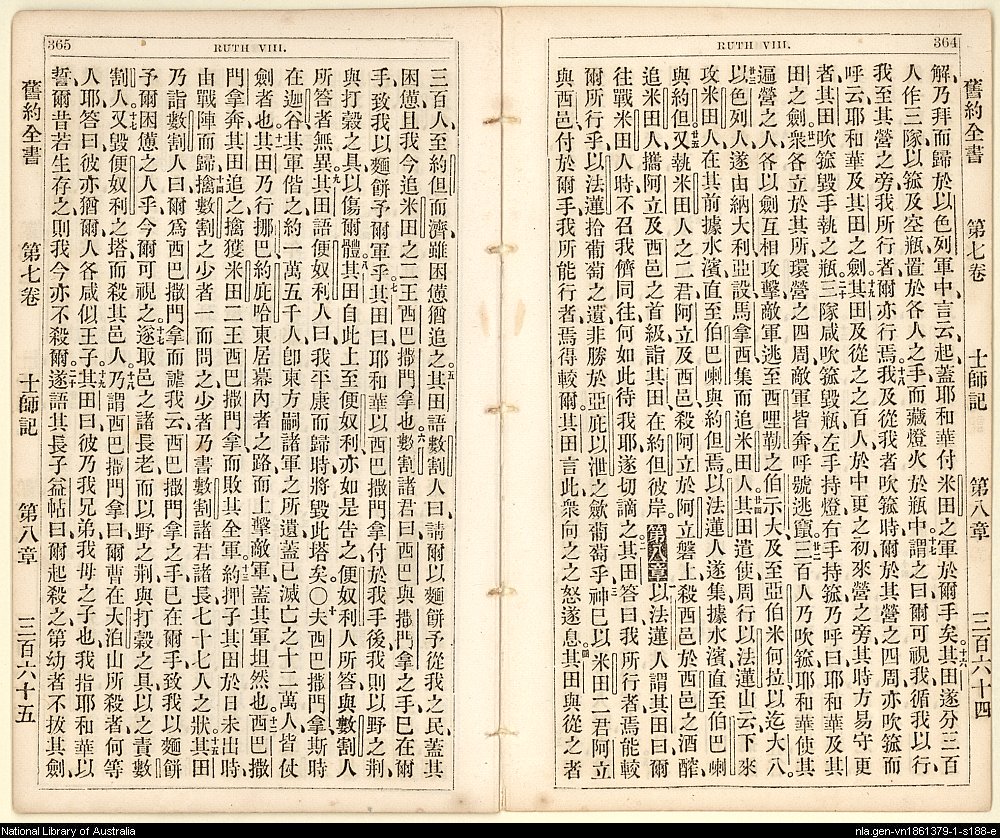 364
RUTH VIII.
舊約全書　第七卷　士師記　第八章　三百六十四
解、乃拜而歸於以色列軍中、言云、起、蓋耶和華付米田之軍於爾手矣。十六其田遂分三百
人作三隊、以箛及空瓶置於各人之手、而藏燈火於瓶中。十七謂之曰、爾可視我循我以行、
我至其營之旁、我所行者、爾亦行焉。十八我及從我者吹箛時、爾於其營之四周、亦吹箛而
呼云、耶和華及其田之劍。十九其田及從之之百人、於中更之初、來營之旁、其時方易守更
者、其田吹箛、毀手執之瓶。二十三隊咸吹箛毀瓶、左手持燈、右手持箛、乃呼曰、耶和華及其
田之劍、眾各立於其所環營之四周、敵軍皆奔、呼號逃竄。廿二三百人乃吹箛、耶和華使其
遍營之人、各以劍互相攻擊、敵軍逃至西哩勒之伯示大、及至亞伯米何拉、以迄大八。
廿三以色列人遂由納大利亞設馬拿西集而追米田人。廿四其田遣使周行以法蓮山云、下來
攻米田人、在其前據水濱、直至伯巴喇與約但焉、以法蓮人遂集、據水濱直至伯巴喇
與約但。廿五又執米田人之二君、阿立及西邑、殺阿立於阿立磐上、殺西邑於西邑之酒醡、
追米田人、攜阿立及西邑之首級、詣其田在約但彼岸。第八章以法蓮人謂其田曰、爾
往戰米田人時、不召我儕同往、何如此待我耶、遂切謫之。二其田答曰、我所行者、焉能較
爾所行乎、以法蓮拾葡萄之遺、非勝於亞庇以泄之斂葡萄乎。三神已以米田二君阿立
與西邑付於爾手、我所能行者、焉得較爾、其田言此、眾向之之怒遂息。四其田與從之者
RUTH VIII.
365
三百人至約但而濟、雖困憊、猶追之。五其田語數割人曰、請爾以麵餅予從我之民、蓋其
困憊、且我今追米田之二王西巴撒門拿也。六數割諸君曰、西巴與撒門拿之手已在爾
手、致我以麵餅予爾軍乎。七其田曰、耶和華以西巴撒門拿付於我手後、我則以野之荆
與打穀之具、以傷爾體。八其田自此上至便奴利、亦如是告之、便奴利人所答、與數割人
所答者無異。九其田語便奴利人曰、我平康而歸時、將毀此塔矣。〇十夫西巴撒門拿、斯時
在迦谷、其軍偕之、約一萬五千人、卽東方嗣諸軍之所遺、蓋已滅亡之十二萬人、皆仗
劍者也。十一其田乃行挪巴約庇哈東居幕內者之路、而上擊敵軍、蓋其軍坦然也。十二西巴撒
門拿奔、其田追之、擒獲米田二王西巴撒門拿、而敗其全軍。十三約押子其田於日未出時
由戰陣而歸。十四擒數割之少者一而問之、少者乃書數割諸君諸長七十七人之狀。十五其田
乃詣數割人曰、爾爲西巴撒門拿而謔我云、西巴撒門拿之手已在爾手、致我以麵餅
予爾困憊之人乎、今爾可視之。十六遂取邑之諸長老、而以野之荆、與打穀之具、以之責數
割人。十七又毀便奴利之塔、而殺其邑人。十八乃謂西巴撒門拿曰、爾曹在大泊山所殺者何等
人耶、答曰、彼亦猶爾、人各咸似王子。十九其田曰、彼乃我兄弟、我母之子也、我指耶和華以
誓、爾昔若生存之、則我今亦不殺爾。二十遂語其長子益帖曰、爾起殺之、第幼者不拔其劍、
舊約全書　第七卷　士師記　第八章　三百六十五
National Library of Australia
nla.gen-vn1861379-1-s188-e